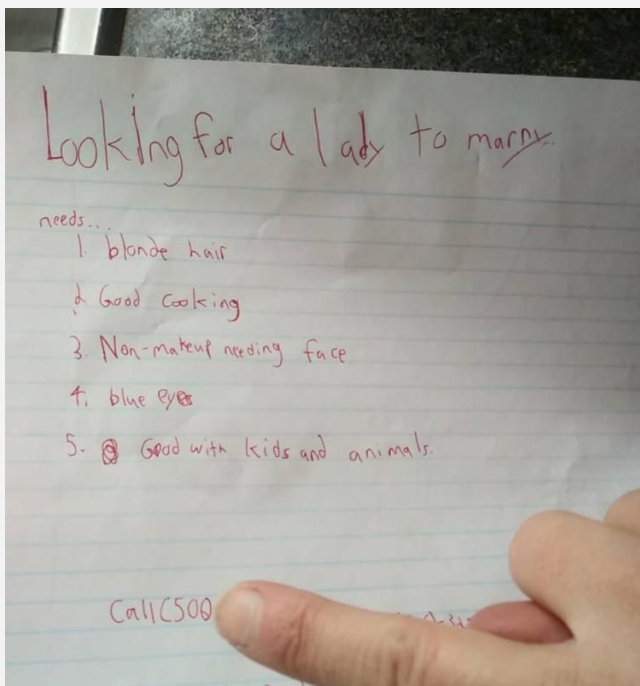 Looking for a lady to marry
needs...
1. blonde hair
2. Good cooking
3. Non-makeup needing face
4. blue eyes
5. Good with kids and animals.
Call (500